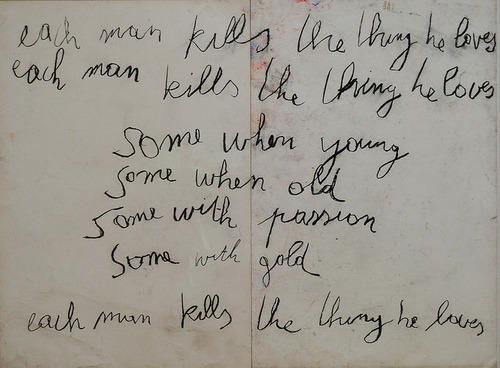 each man kills the thing he loves
each man kills the thing he loves
Some when young
some when old
some with passion
some with gold
each man kills the thing he loves